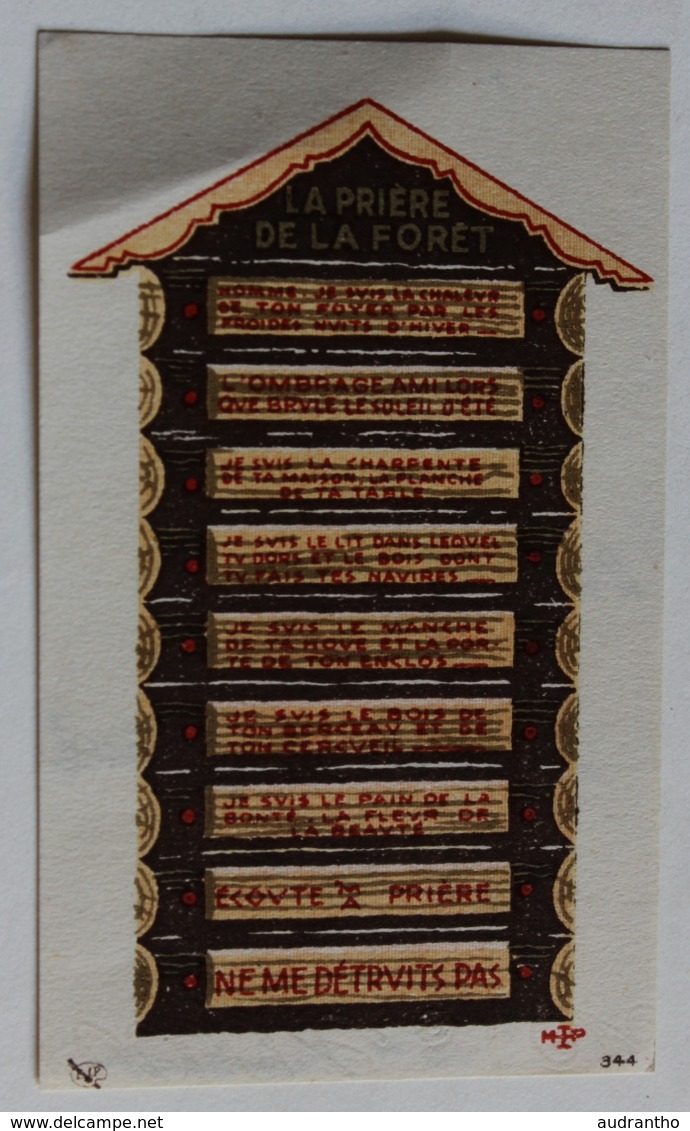 LA PRIÈRE
DE LA FORÊT
HOMME, JE SVIS LA CHALEVR
DE TON FOYER PAR LES
FROIDES NVITS D'HIVER
L'OMBRAGE AMI LORS
QVE BRVLE LE SOLEIL D'ÉTÉ
JE SVIS LA CHARPENTE
DE TA MAISON, LA PLANCHE
DE TA TABLE
JE SVIS LE LIT DANS LEQVEL
TV DORS ET LE BOIS DONT
TV FAIS TES NAVIRES
JE SVIS LE MANCHE
DE TA HOVE ET LA POR-
TE DE TON ENCLOS
JE SVIS LE BOIS DE
TON BERCEAV ET DE
TON CERCVEIL
JE SVIS LE PAIN DE LA
BONTÉ, LA FLEVR DE
LA BEAVTÉ
ÉCOVTE MA PRIÈRE
NE ME DÉTRVITS PAS
344
audrantho